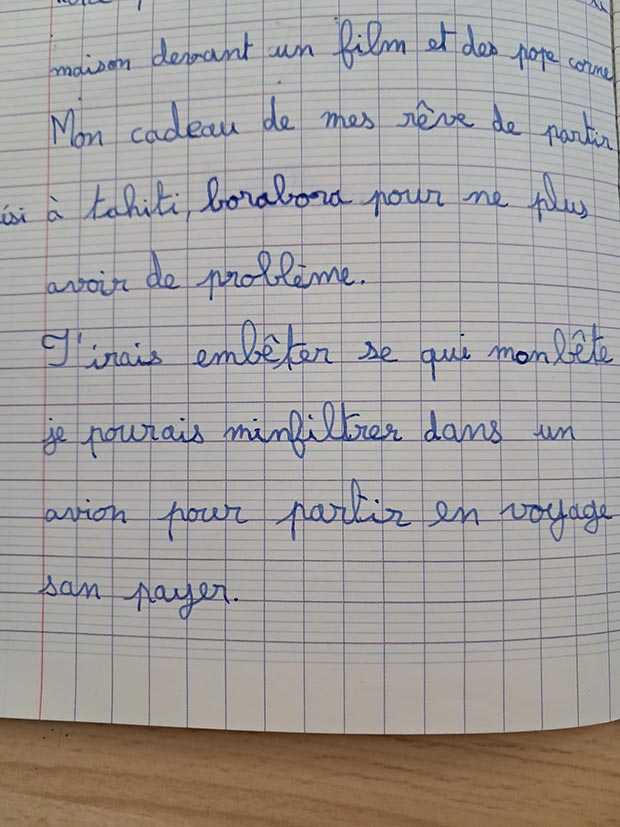 maison devant un film et des pope corne
Mon cadeau de mes rêve de partir
à tahiti, borabora pour ne plus
avoir de problème.
J'irais embêter se qui monbête
je pourais minfiltrer dans un
avion pour partir en voyage
san payer.